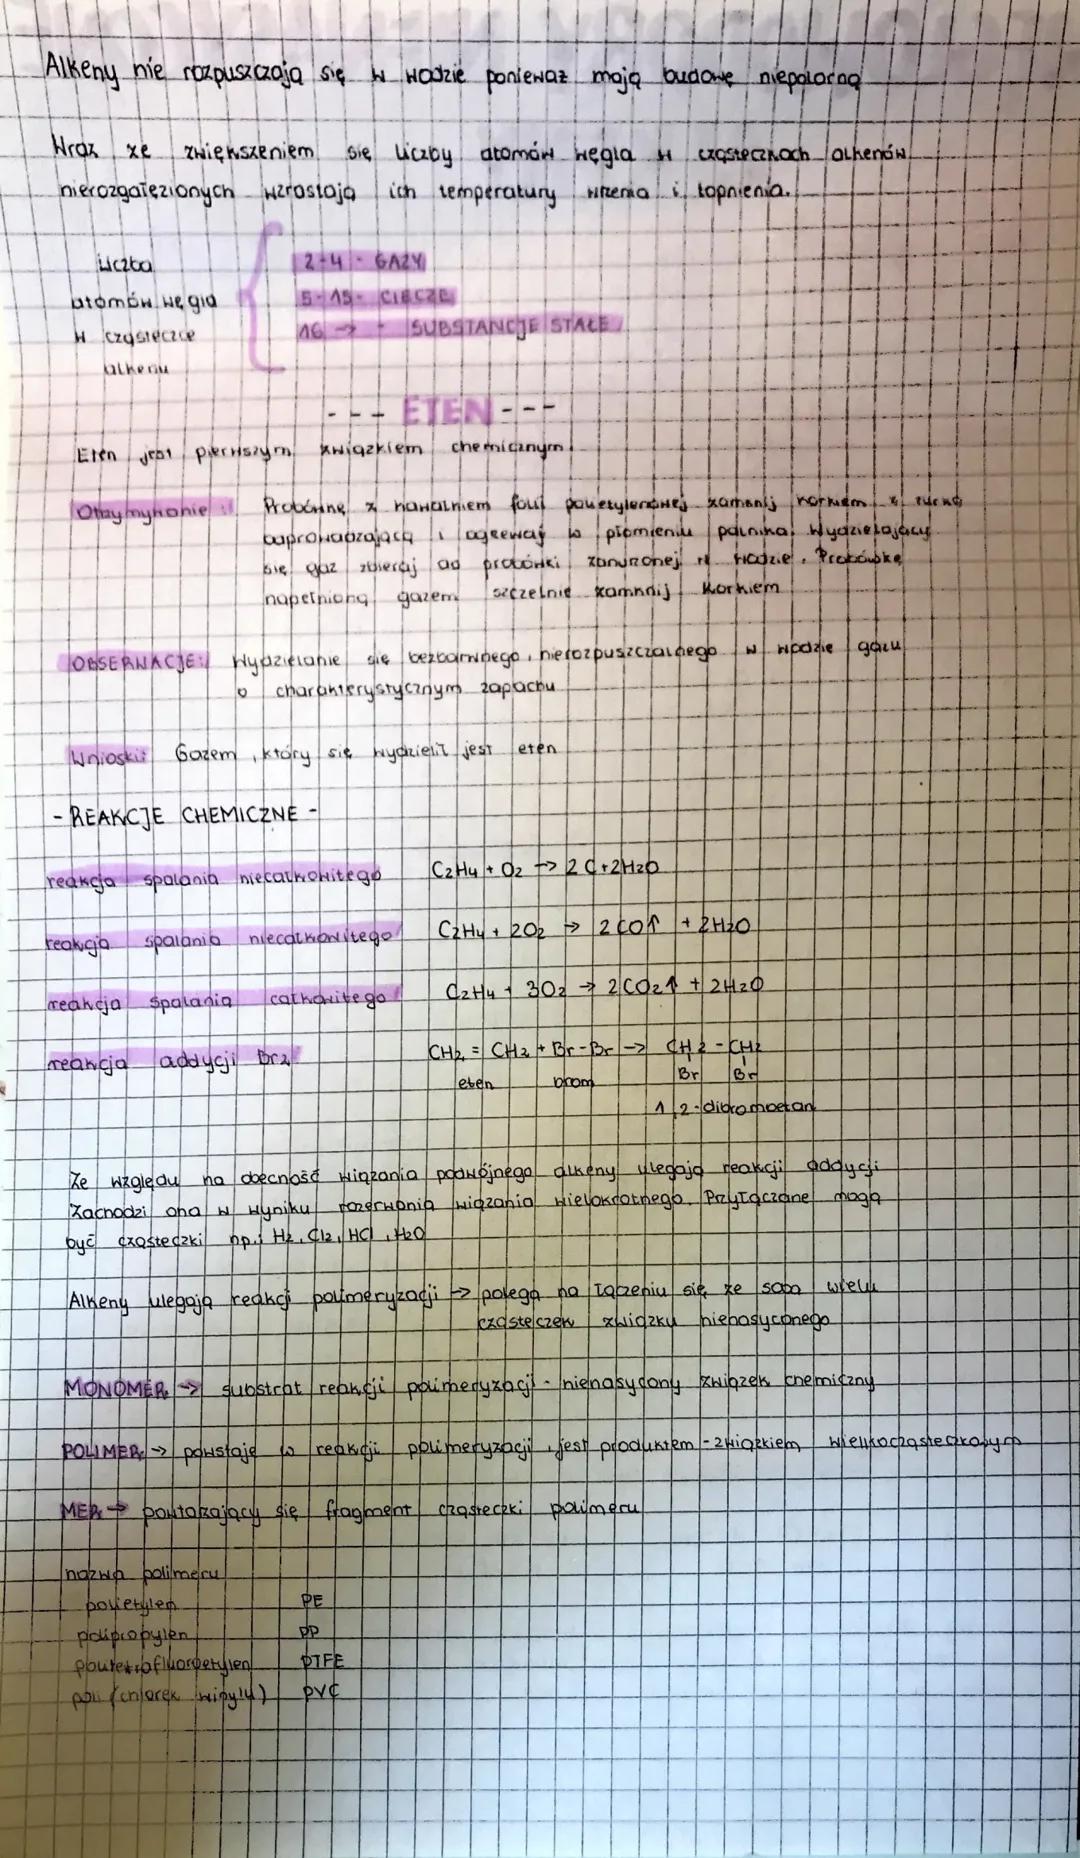 Alkeny nie rozpuszczają się w wodzie ponieważ mają budowę niepolarną
Wraz ze zwiększeniem się liczby atomów węgla w cząsteczkach alkenów
nierozgałęzionych wzrostają ich temperatury wrzenia i topnienia.
Liczba
atomów węgla
w cząsteczce
alkenu
2-4 - GAZY
5-15- CIECZE
16 → - SUBSTANCJE STAŁE
--- ETEN ---
Eten jest pierwszym związkiem chemicznym.
Otrzymywanie: Probówkę z kawałkiem folii polietylenowej zamknij korkiem z rurką
odprowadzającą i ogrzewaj w płomieniu palnika. Wydzielający
się gaz zbieraj do probówki zanurzonej w wodzie. Probówkę
napełnioną gazem szczelnie zamknij korkiem
OBSERWACJE: Wydzielanie się bezbarwnego, nierozpuszczalnego w wodzie gazu
o charakterystycznym zapachu
Wnioski: Gazem, który się wydzielił jest eten
- REAKCJE CHEMICZNE -
reakcja spalania niecałkowitego C2H4 + O2 → 2 C+2H2O
reakcja spalania niecałkowitego C2H4 + 2O2 → 2CO↑ + 2H2O
reakcja spalania całkowitego C2H4 + 3O2 → 2CO2↑ + 2H2O
reakcja addycji Br2 CH2 = CH2 + Br-Br → CH2 - CH2
eten brom Br Br
1,2-dibromoetan
Ze względu na obecność wiązania podwójnego alkeny ulegają reakcji addycji
Zachodzi ona w wyniku rozerwania wiązania wielokrotnego. Przyłączane mogą
być cząsteczki np.: H2, Cl2, HCl, H2O
Alkeny ulegają reakcji polimeryzacji → polega na łączeniu się ze sobą wielu
cząsteczek związku nienasyconego
MONOMER → substrat reakcji polimeryzacji - nienasycony związek chemiczny
POLIMER → powstaje w reakcji polimeryzacji, jest produktem - związkiem wielkocząsteczkowym
MER → powtarzający się fragment cząsteczki polimeru
nazwa polimeru
polietylen PE
polipropylen PP
politetrafluoroetylen PTFE
poli (chlorek winylu) PVC